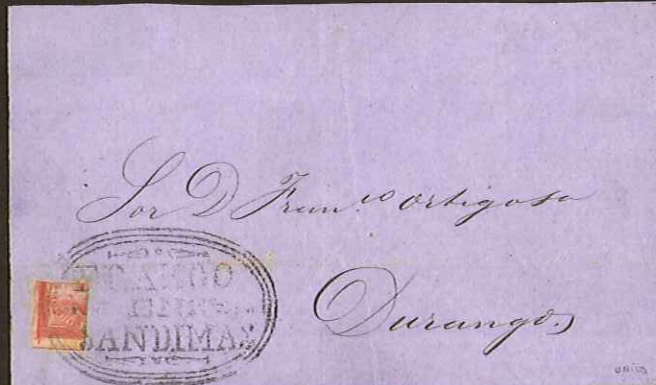 Sor D Fran.co Ortigosa
FRANCO
SANDIMAS
Durango.